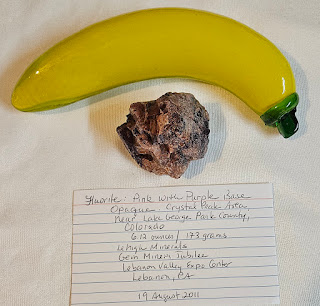 Fluorite: Pink with Purple Base
Opaque Crystal Peak Area,
Near Lake George Park County,
Colorado
6.12 ounces / 173 grams
Lehigh Minerals
Gem Miners Jubilee
Lebanon Valley Expo Center
Lebanon, PA
19 August 2011